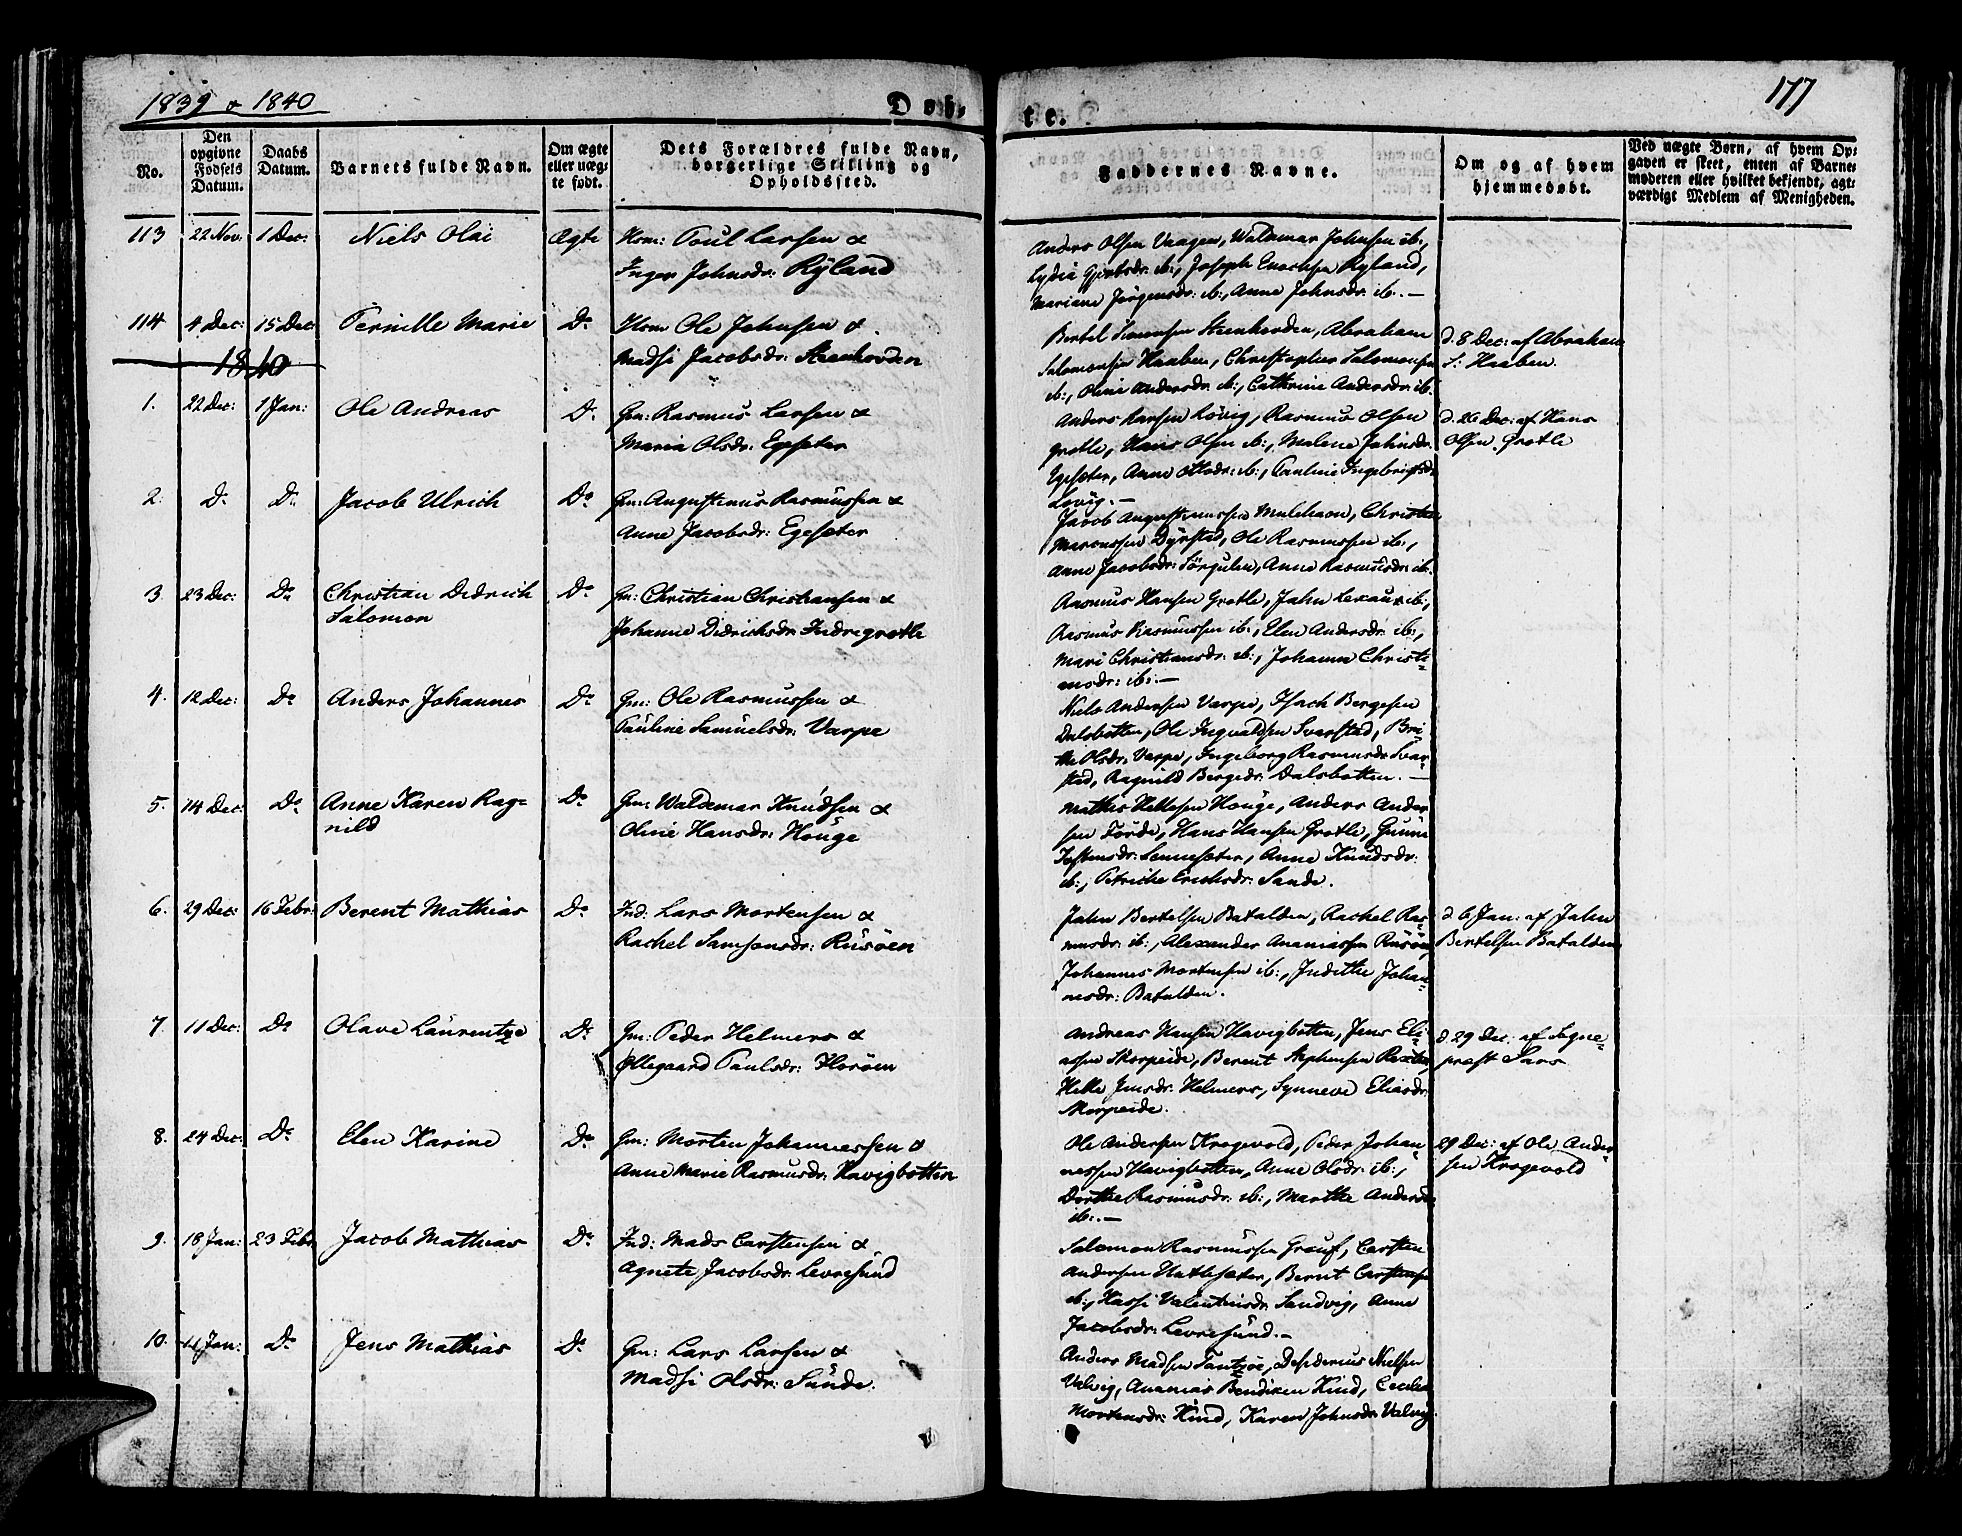 1839 & 1840
Døb-
te.
177
No.
Den opgivne Fødsels Datum.
Daabs Datum.
Barnets fulde Navn.
Om ægte eller uæg- te født.
Dets Forældres fulde Navn, borgerlige Stilling og Opholdssted.
Faddernes Navne.
Om og af hvem hjemmedøbt.
Ved uægte Børn, af hvem Op- gaven er skeet, enten af Barne- moderen eller hvilket bekjendt, agt- værdigt Medlem af Menigheden.
113 22 Nov. 1 Dec: Niels Olai Ægte Hsm: Poul Larsen &
Inger Johnsdr: Ryland
Anders Olsen Vaagen, Waldemar Johnsen ib:,
Lydia ib:, Joseph Enochsen Ryland,
Mariane Jørgensdr: ib:, Anne Johnsdr: ib. —
114 4 Dec: 15 Dec Pernille Marie Do Hsm Ole Johnsen &
Madsi Jacobsdr: Steenhovden
Bertel Steenhovden, Abraham
Salomonsen Haaben, Christopher Salomonsen
ib:, Oline Andersdr: ib:, Cathrine Andersdr: ib.
d. 8 Dec: af Abraham
S: Haaben.
1840
1. 22 Dec: 1 Jan: Ole Andreas Do Gm: Rasmus Larsen &
Maria Olsdr: Egesæter
Anders Hansen Løvig, Rasmus Olsen
Grotle, Hans Olsen ib:, Malene Johnsdr:
Egesæter, Anne Olsdr: ib:, Pauline Ingebrigtsdr:
Løvig. —
d. 26 Dec: af Hans
Olsen Grotle
2. Do Do Jacob Ulrich Do Gm: Augustinus Rasmussen &
Anne Jacobsdr: Egesæter
Jacob Augustinussen Christen
Marcussen Dyrstad, Ole Rasmussen ib:,
Anne Jacobsdr: Sørgulen, Anne Rasmusdr: ib.
3. 23 Dec: Do Christian Didrich
Salomon
Do Gm: Christian Christiansen &
Johanne Didrichsdr: Indregrotle
Rasmus Hansen Grotle, John ib:,
Rasmus Rasmussen ib:, Elen Andersdr: ib:,
Mari Christiansdr: ib:, Johanne Christi-
ib: —
4. 12 Dec: Do Anders Johannes Do Gm: Ole Rasmussen &
Pauline Samuelsdr: Varpe
Niels Andersen Varpe, Isach Bergesen
Dalsbotten, Ole Ingvaldsen Svarstad, Bri-
the Olsdr: Varpe, Ingeborg Rasmusdr: Svar-
stad, Ragnild Bergesdr: Dalsbotten. —
5. 14 Dec: Do Anne Karen Rag-
nild
Do Gm: Waldemar Knudsen &
Oline Hansdr: Houge
Mathis Houge, Anders Ander-
sen Førde, Hans Hansen Grotle,
Sennesæter, Anne Knudsdr:
ib:, Petriche Erichsdr: Sande.
6. 29 Dec: 16 Febr: Berent Mathias Do Ind: Lars Mortensen &
Rachel Samsonsdr: Rusøen
John Bertelsen Batalden, Rachel Ras-
musdr: ib:, Alexander Ananiassen Rusøen
Johannes Mortensen ib:, Judithe Johan-
nesdr: Batalden.
d 6 Jan: af John
Bertelsen Batalden
7. 11 Dec: Do Olave Laurentze Do Gm: Peder Helmers &
Ollegaard Paulsdr: Horøen
Andreas Hansen Havigbotten, Jens Eli-
assen Skorpeide, Berent Stephensen
Jensdr: Helmers, Synneve Eliasdr:
Skorpeide.
d 29 Dec: af Sogne-
præst Sars
8. 24 Dec: Do Elen Karine Do Gm: Morten Johannessen &
Anne Marie Rasmusdr: Havigbotten
Ole Andersen Krogevold, Peder Johan-
nessen Havigbotten, Anne Olsdr: ib:,
Dorthe Rasmusdr: ib:, Marthe Andersdr:
ib: —
29 Dec: af Ole Ander-
sen Krogevold
9. 18 Jan: 23 Febr: Jacob Mathias Do Ind: Mads Carstensen &
Agnete Jacobsdr: Levresund
Salomon Rasmussen Carsten
Andersen Hatlesæter, Bernt Carstensen
ib:, Hassi Valentinsdr: Sandvig, Anne
Jacobsdr: Levresund. —
10. Jan: Do Jens Mathias Do Gm: Lars Larsen &
Madsi Olsdr: Sunde.
Anders Madsen Tantzøe, Desiderius Nielsen
Valvig, Ananias Bendixen Kind, Cecilia
Mortensdr: Kind, Karen Johnsdr: Valvig.